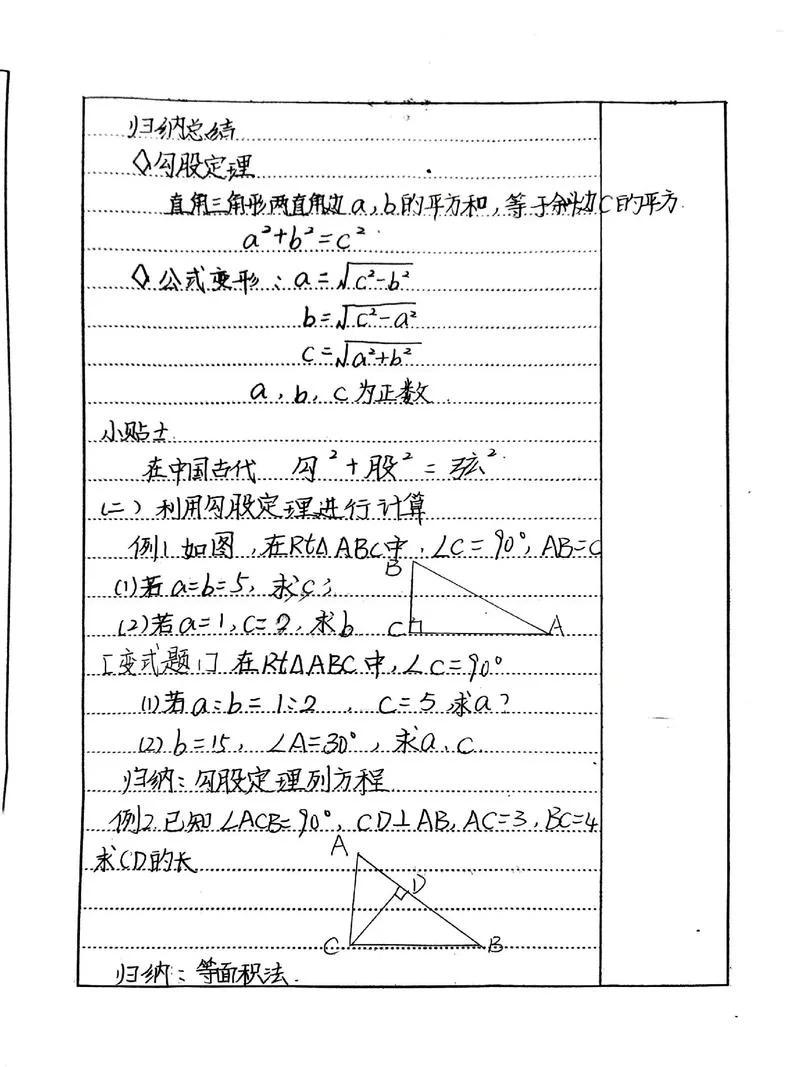 归纳总结
◇勾股定理
直角三角形两直角边a,b的平方和,等于斜边C的平方.
a²+b²=c²
◇公式变形:a=√c²-b²
b=√c²-a²
c=√a²+b²
a,b,c为正数.
小贴士
在中国古代 勾²+股²=弦²
(二)利用勾股定理进行计算
例1 如图,在Rt△ABC中,∠C=90°,AB=C
(1)若a=b=5,求c;
B
(2)若a=1,c=2,求b
C A
[变式题1] 在Rt△ABC中,∠C=90°
(1)若a:b=1:2 , C=5,求a?
(2) b=15, ∠A=30°,求a、c.
归纳:勾股定理列方程
例2.已知∠ACB=90°,CD⊥AB,AC=3,BC=4
求CD的长
A
D
C B
归纳:等面积法.